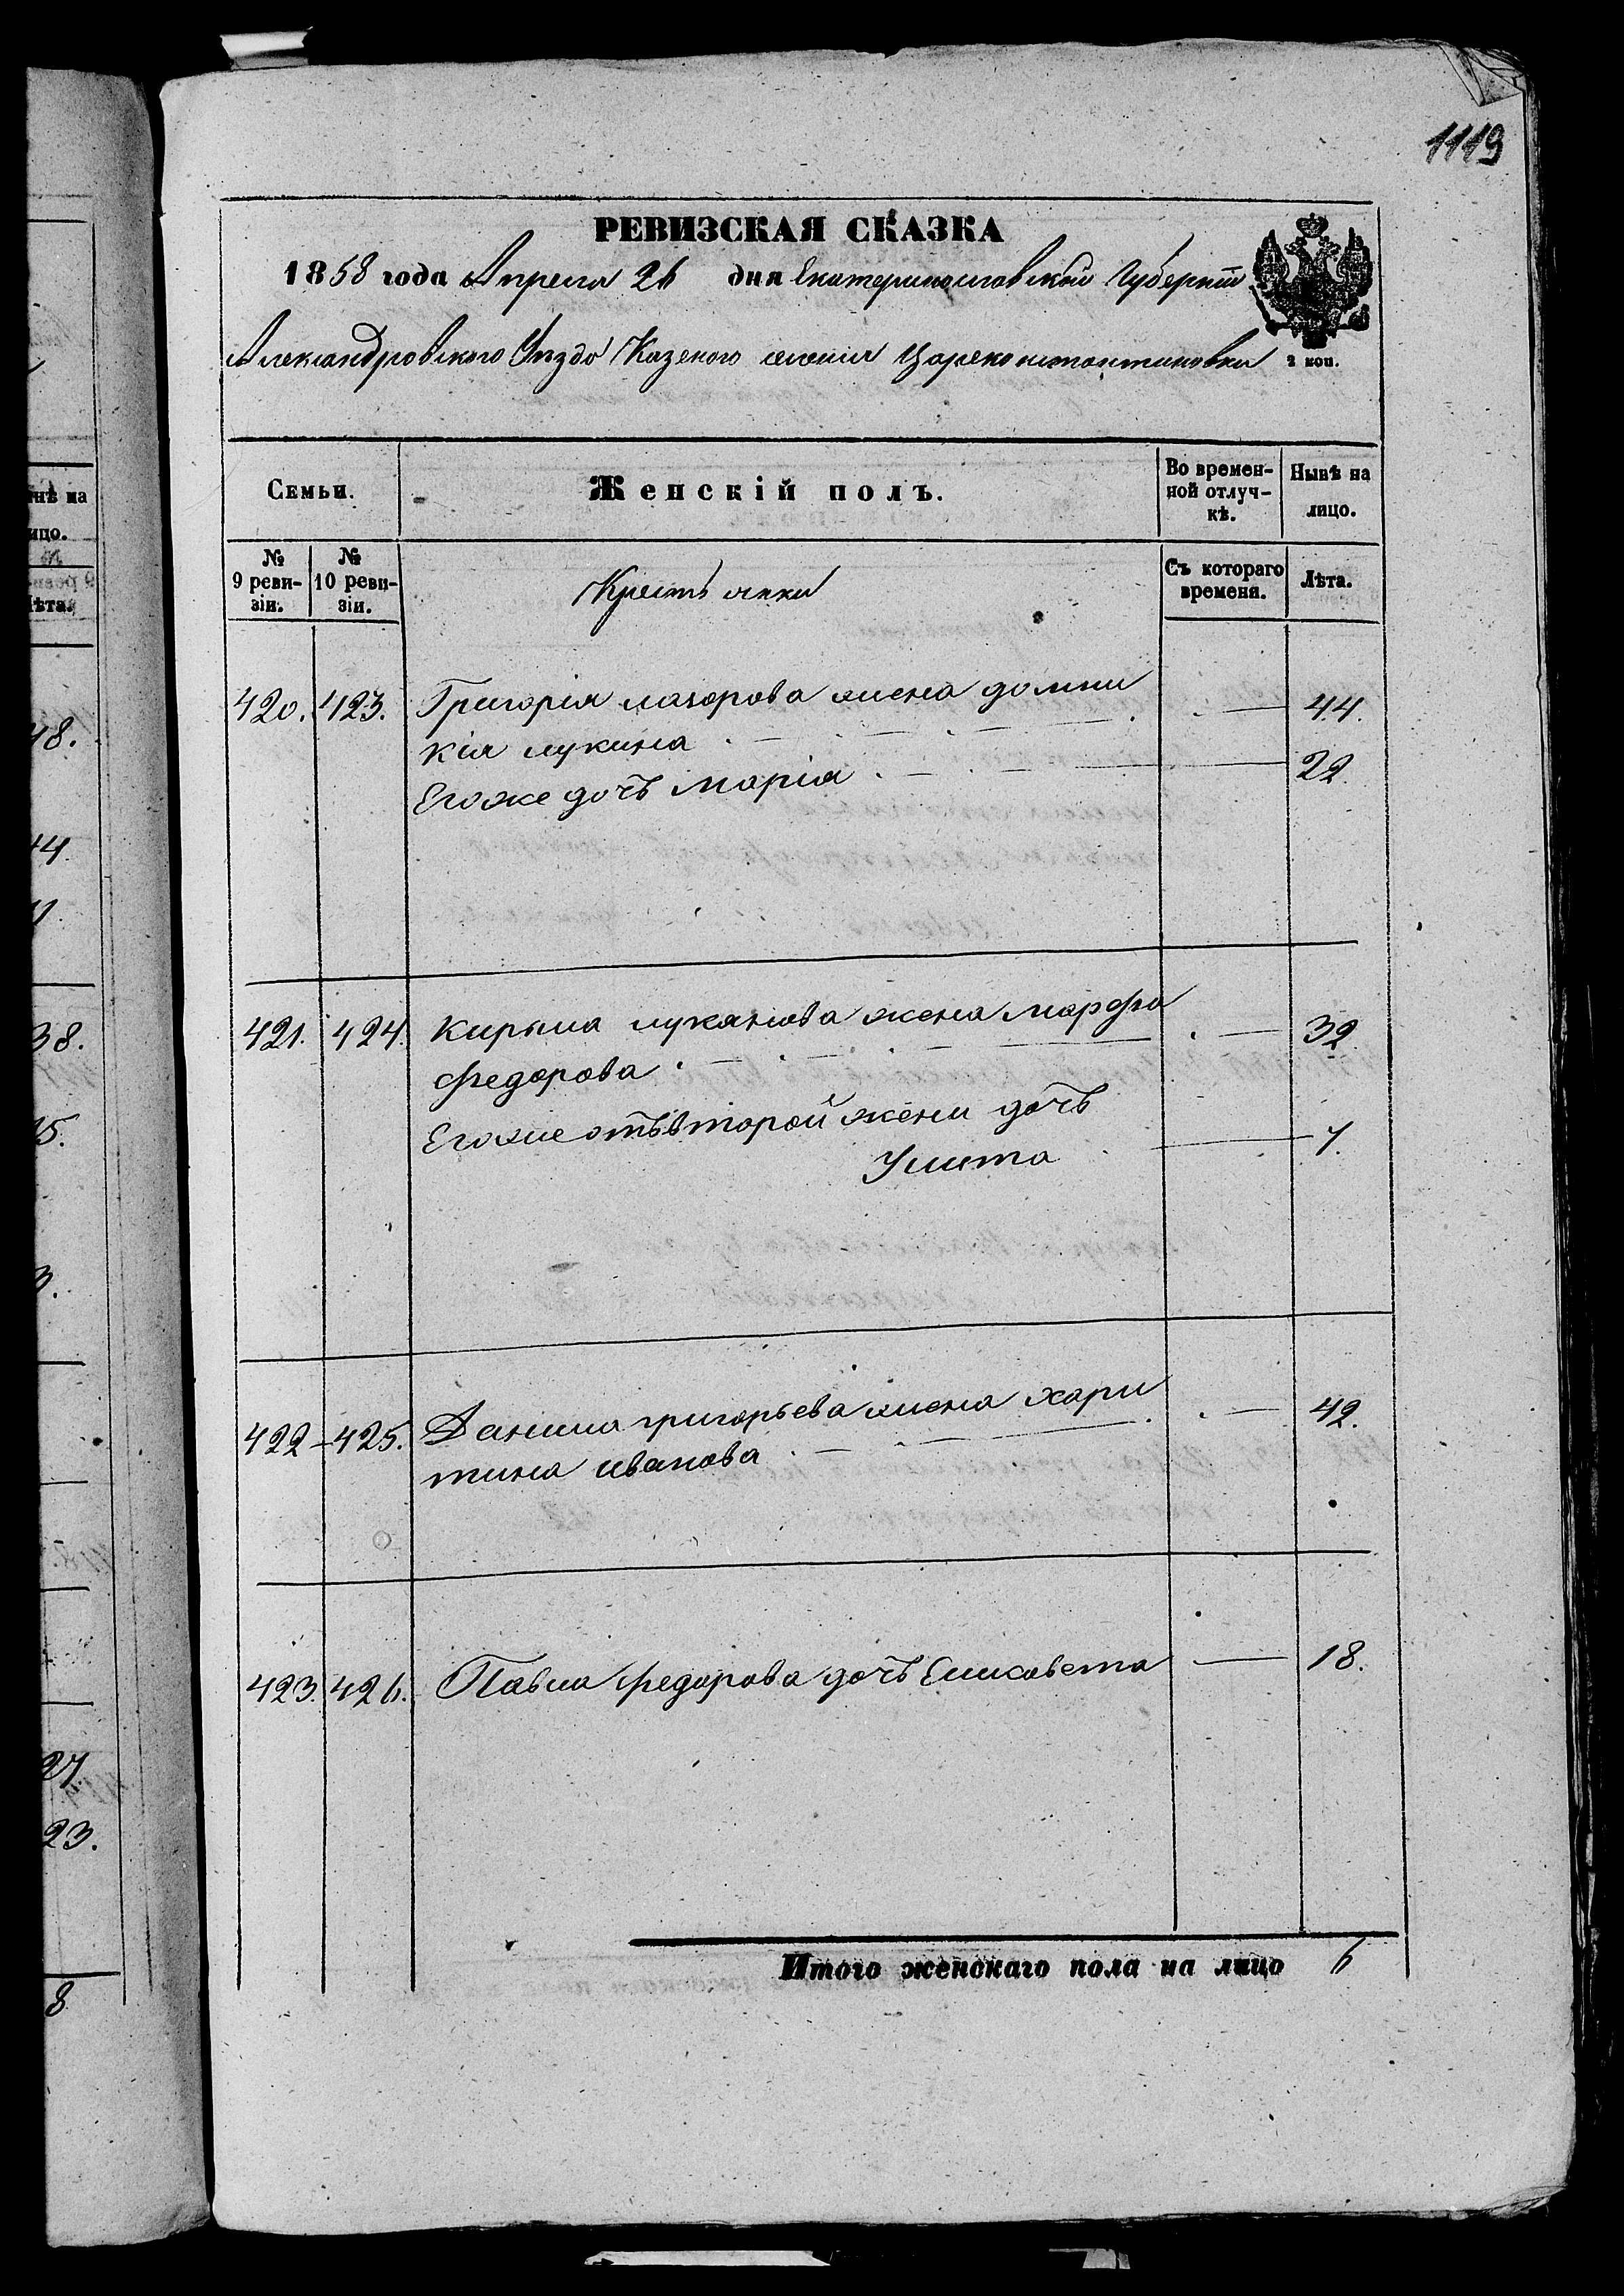 1119
РЕВИЗСКАЯ СКАЗКА
1858 года Апреля 26 дня Екатеринославской Губернiи
Александровского Уѣзда Казеного селенiя Цареконстантиновки
2 коп.
Семьи.
Женскiй полъ.
Во времен-
ной отлуч-
кѣ.
Нынѣ на
лицо.
№
9 реви-
зiи.
№
10 реви-
зiи.
Крестьянки
Съ котораго
времени.
Лѣта.
420. 423. Григорiя лазорова жена домни 44.
кiя лукина
Егоже дочъ марiя 22.
421. 424. Кирила лукянова жена марфа 32.
федорова
Егоже отъ второй жени дочъ
Улита 7.
422 425. Данила григорьева жена хари 42.
тина иванова
423. 426. Павла федорова дочъ Елисавета 18.
Итого женскаго пола на лицо 6
нѣ на
ицо.
ѣта.
48.
44.
38.
15.
3.
27.
23.
8